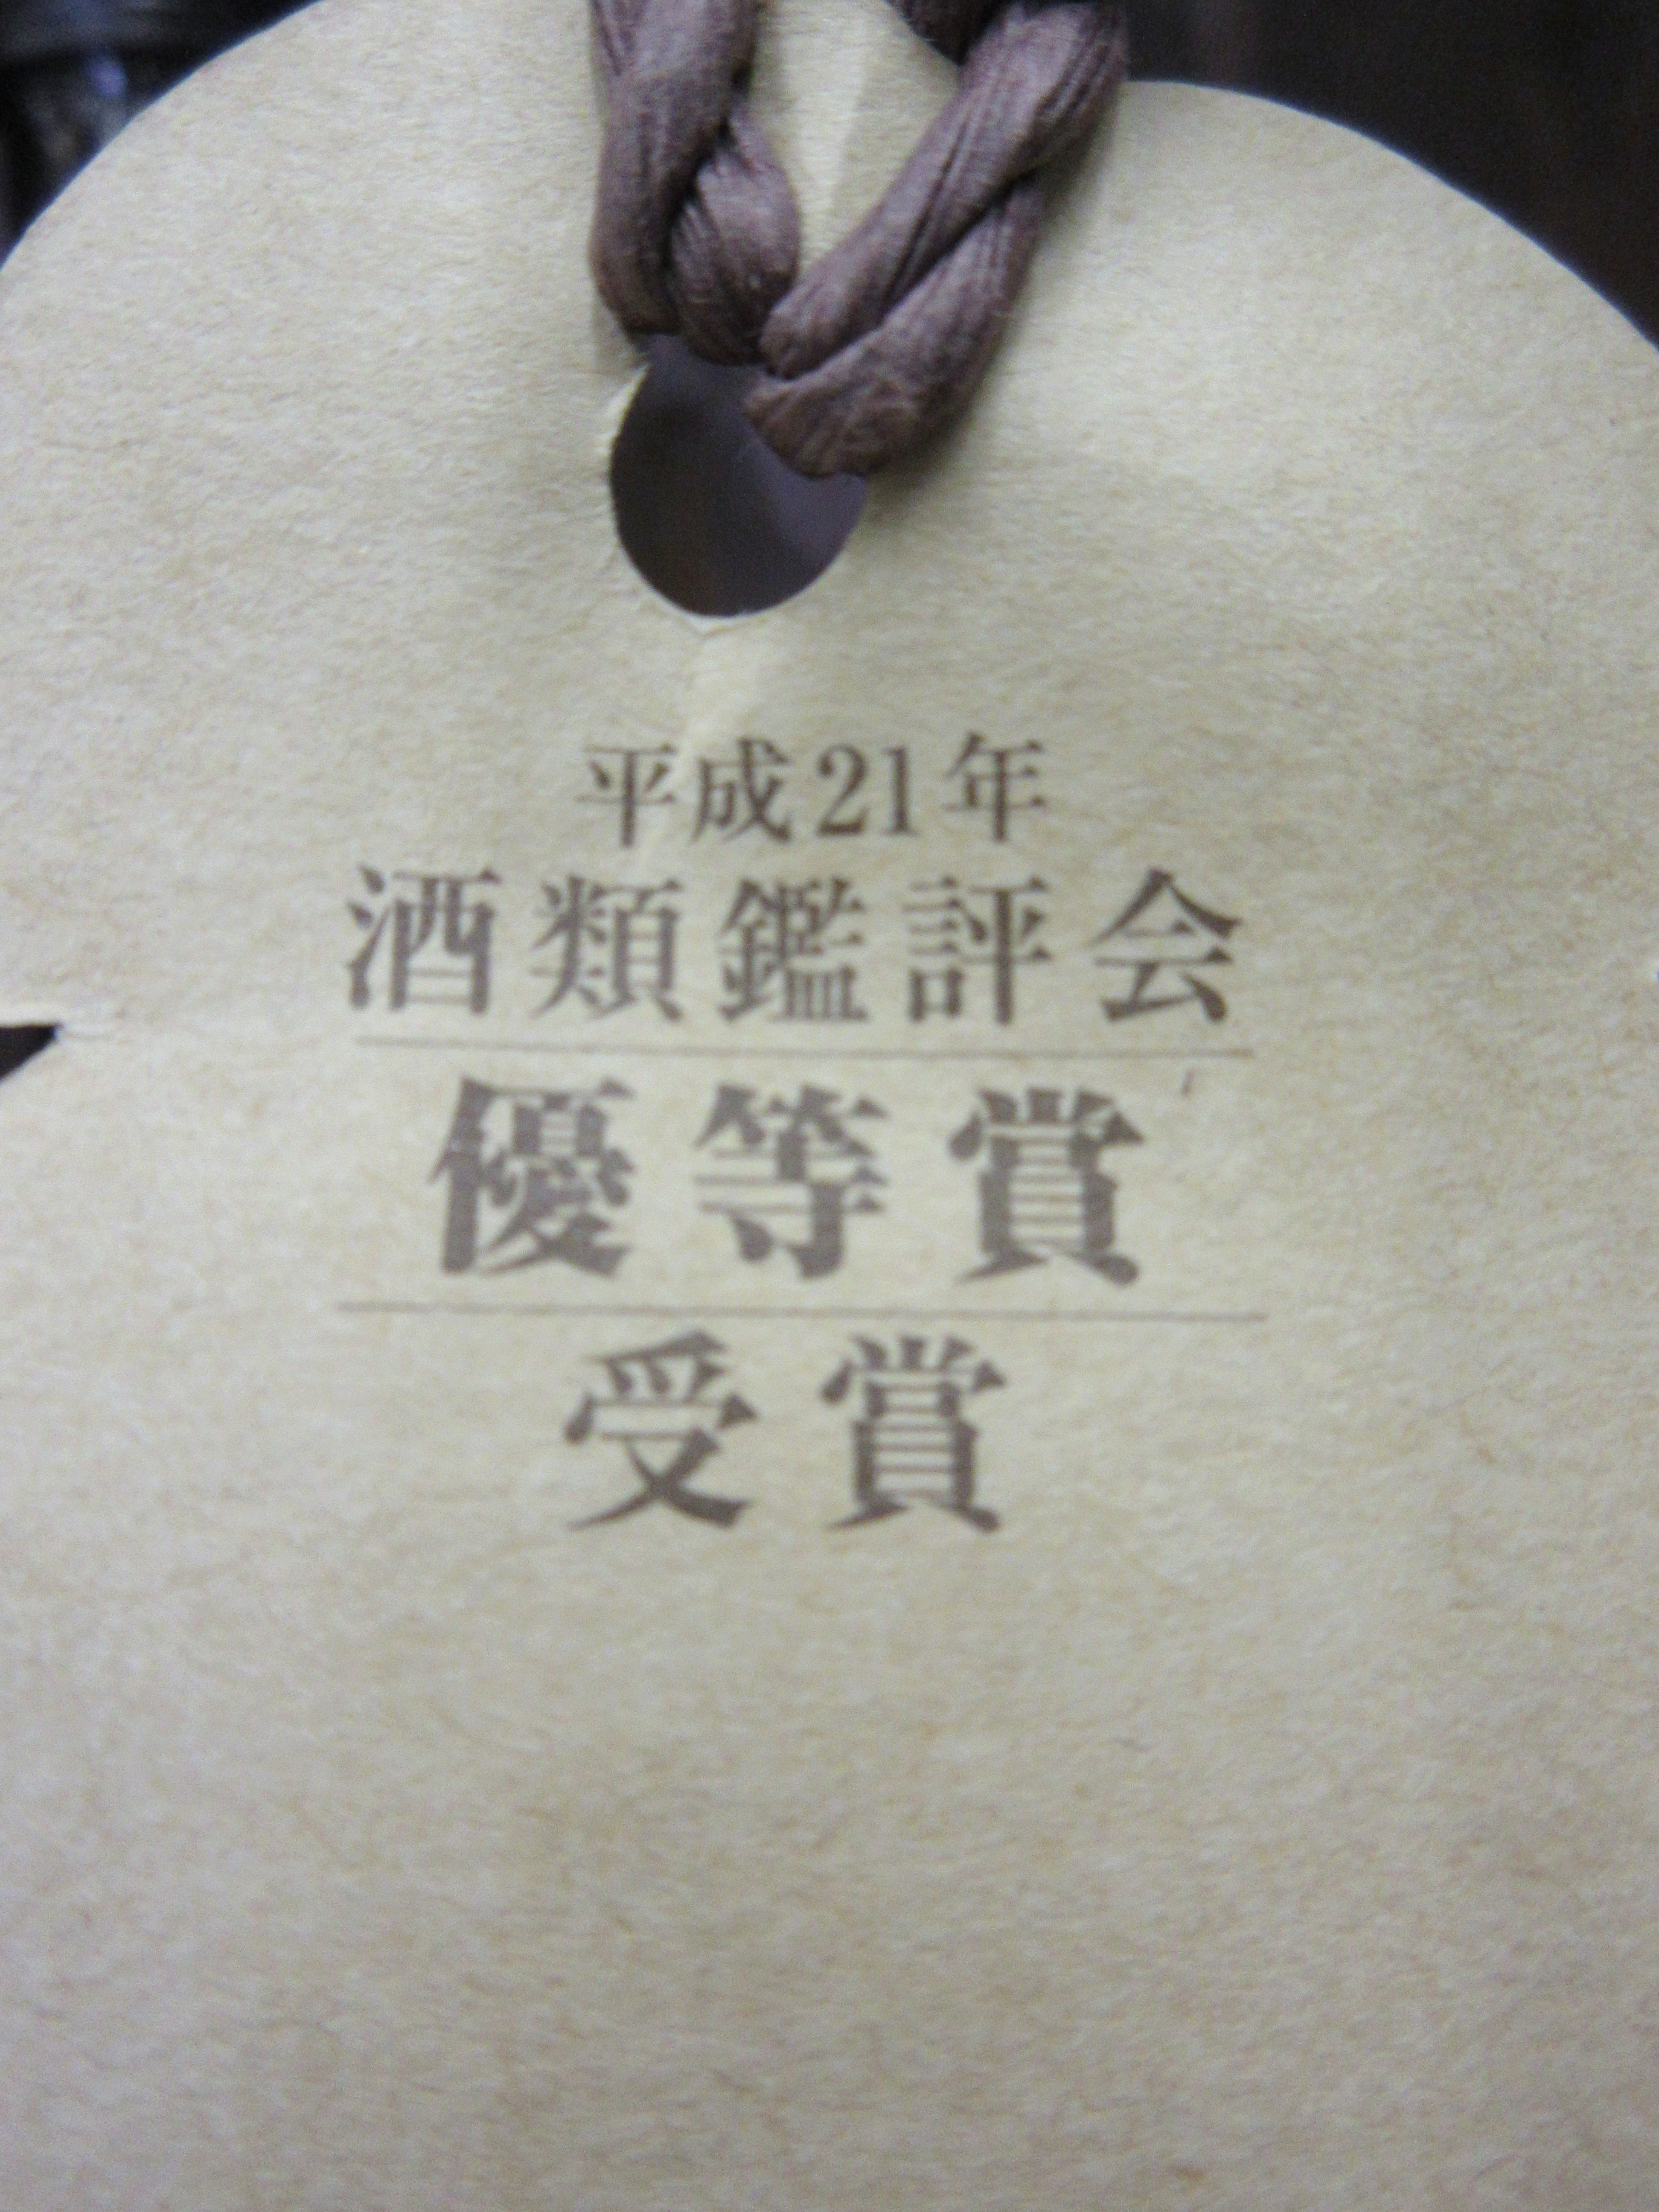 平成21年
酒類鑑評会
優等賞
受賞